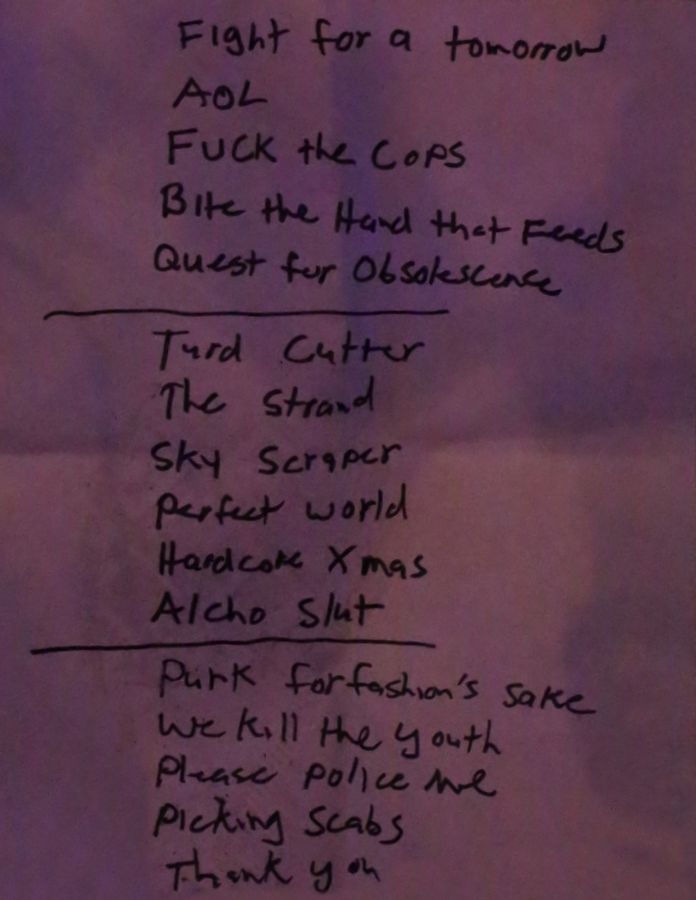 Fight for a tomorrow
AOL
FUCK the COPS
Bite the Hand that Feeds
Quest for Obsolescence
Turd Cutter
The Strand
Sky Scraper
Perfect world
Hardcore Xmas
Alcho Slut
Punk for fashion's sake
We Kill the youth
Please police me
Picking Scabs
Thank you